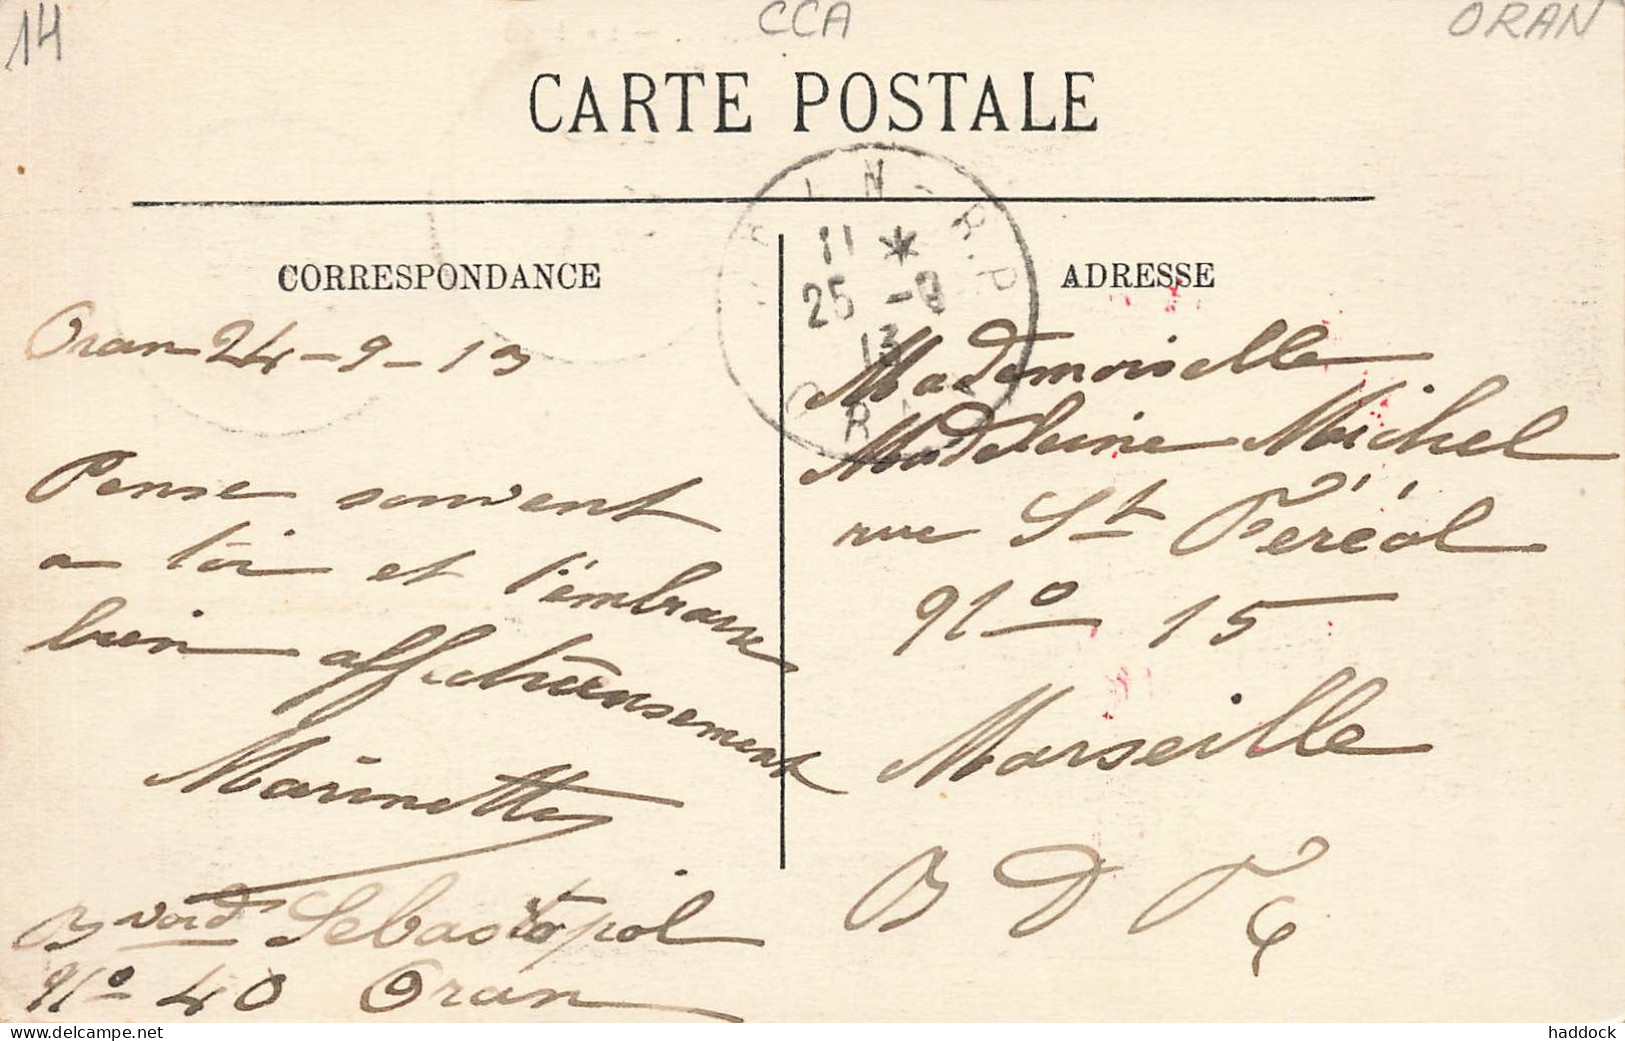 14
CCA
ORAN
CARTE POSTALE
CORRESPONDANCE
ADRESSE
11 *
25 -9
13
Oran 24-9-13
Pense souvent
a toi et t'embrasse
bien affectueusement
Marinette
Bvard Sebastopol
No 40 Oran
Mademoiselle
Madeleine Michel
rue St Feréol
No 15
Marseille
B D
haddock